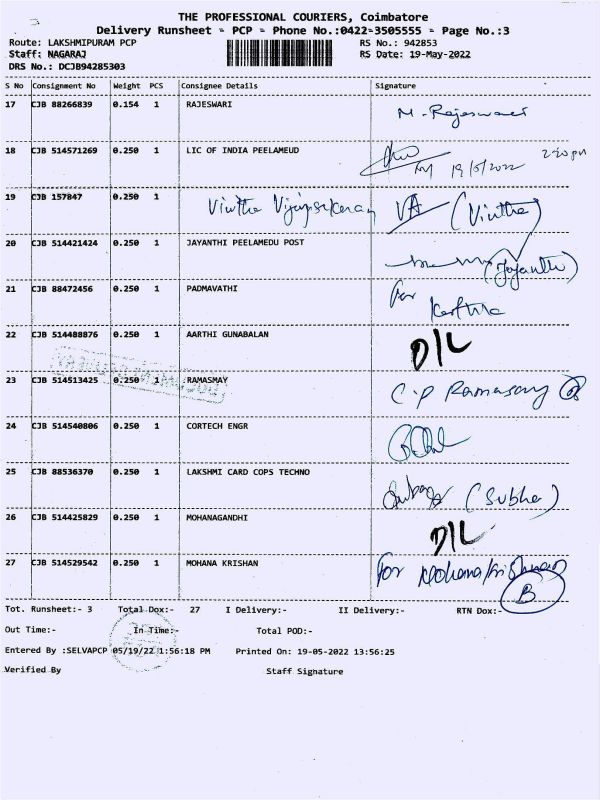 THE PROFESSIONAL COURIERS, Coimbatore
Delivery Runsheet = PCP = Phone No.:0422=3505555 = Page No.:3
Route: LAKSHMIPURAM PCP RS No.: 942853
Staff: NAGARAJ RS Date: 19-May-2022
DRS No.: DCJB94285303
S No Consignment No Weight PCS Consignee Details Signature
17 CJB 88266839 0.154 1 RAJESWARI M. Rajeswari
18 CJB 514571269 0.250 1 LIC OF INDIA PEELAMEUD 19/5/2022 2:20 pm
19 CJB 157847 0.250 1 (Vintha)
20 CJB 514421424 0.250 1 JAYANTHI PEELAMEDU POST (Jayanthi)
21 CJB 88472456 0.250 1 PADMAVATHI For
22 CJB 514488876 0.250 1 AARTHI GUNABALAN D/L
23 CJB 514513425 0.250 1 RAMASMAY C.P Ramasamy
24 CJB 514540806 0.250 1 CORTECH ENGR
25 CJB 88536370 0.250 1 LAKSHMI CARD COPS TECHNO (Subha)
26 CJB 514425829 0.250 1 MOHANAGANDHI D/L
27 CJB 514529542 0.250 1 MOHANA KRISHAN For Mohana Krishnan
B
Tot. Runsheet:- 3 Total Dox:- 27 I Delivery:- II Delivery:- RTN Dox:-
Out Time:- In Time:- Total POD:-
Entered By :SELVAPCP 05/19/22 1:56:18 PM Printed On: 19-05-2022 13:56:25
Verified By Staff Signature